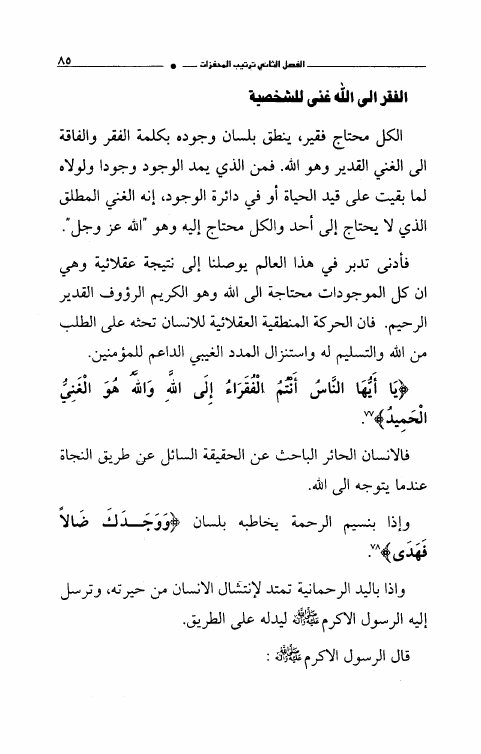 الفصل الثاني ترتيب المحفزات
٨٥
الفقر الى الله غنى للشخصية
الكل محتاج فقير، ينطق بلسان وجوده بكلمة الفقر والفاقة
الى الغني القدير وهو الله. فمن الذي يمد الوجود وجودا ولولاه
لما بقيت على قيد الحياة أو في دائرة الوجود، إنه الغني المطلق
الذي لا يحتاج إلى أحد والكل محتاج إليه وهو "الله عز وجل".
فأدنى تدبر في هذا العالم يوصلنا إلى نتيجة عقلائية وهي
ان كل الموجودات محتاجة الى الله وهو الكريم الرؤوف القدير
الرحيم. فان الحركة المنطقية العقلائية للانسان تحثه على الطلب
من الله والتسليم له واستنزال المدد الغيبي الداعم للمؤمنين.
﴿يَا أَيُّهَا النَّاسُ أَنْتُمُ الْفُقَرَاءُ إِلَى اللَّهِ وَاللَّهُ هُوَ الْغَنِيُّ
الْحَمِيدُ﴾٧٧.
فالانسان الحائر الباحث عن الحقيقة السائل عن طريق النجاة
عندما يتوجه الى الله.
وإذا بنسيم الرحمة يخاطبه بلسان ﴿وَوَجَدَكَ ضَالاًّ
فَهَدَى﴾٧٨.
واذا باليد الرحمانية تمتد لإنتشال الانسان من حيرته، وترسل
إليه الرسول الاكرم ﷺ ليدله على الطريق.
قال الرسول الاكرم ﷺ :